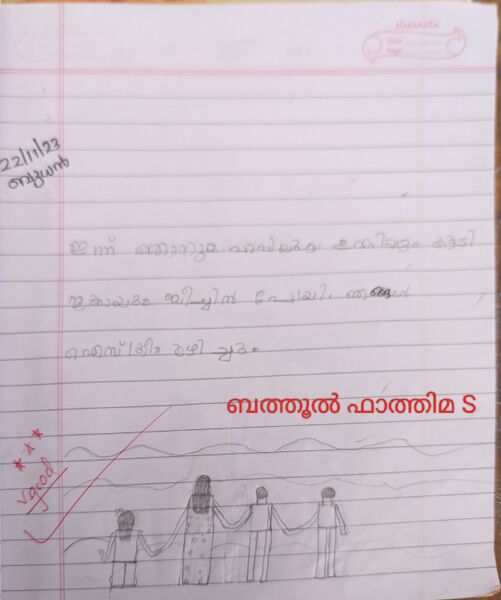 classmate
Date
Page
22/11/23
ബുധൻ
ഇന്ന് ഞാനും കൂടി
ബീച്ചിൽ പോയി. ഞങ്ങൾ
ഐസ്ക്രീം കഴിച്ചു.
ബത്തൂൽ ഫാത്തിമ S
vgood